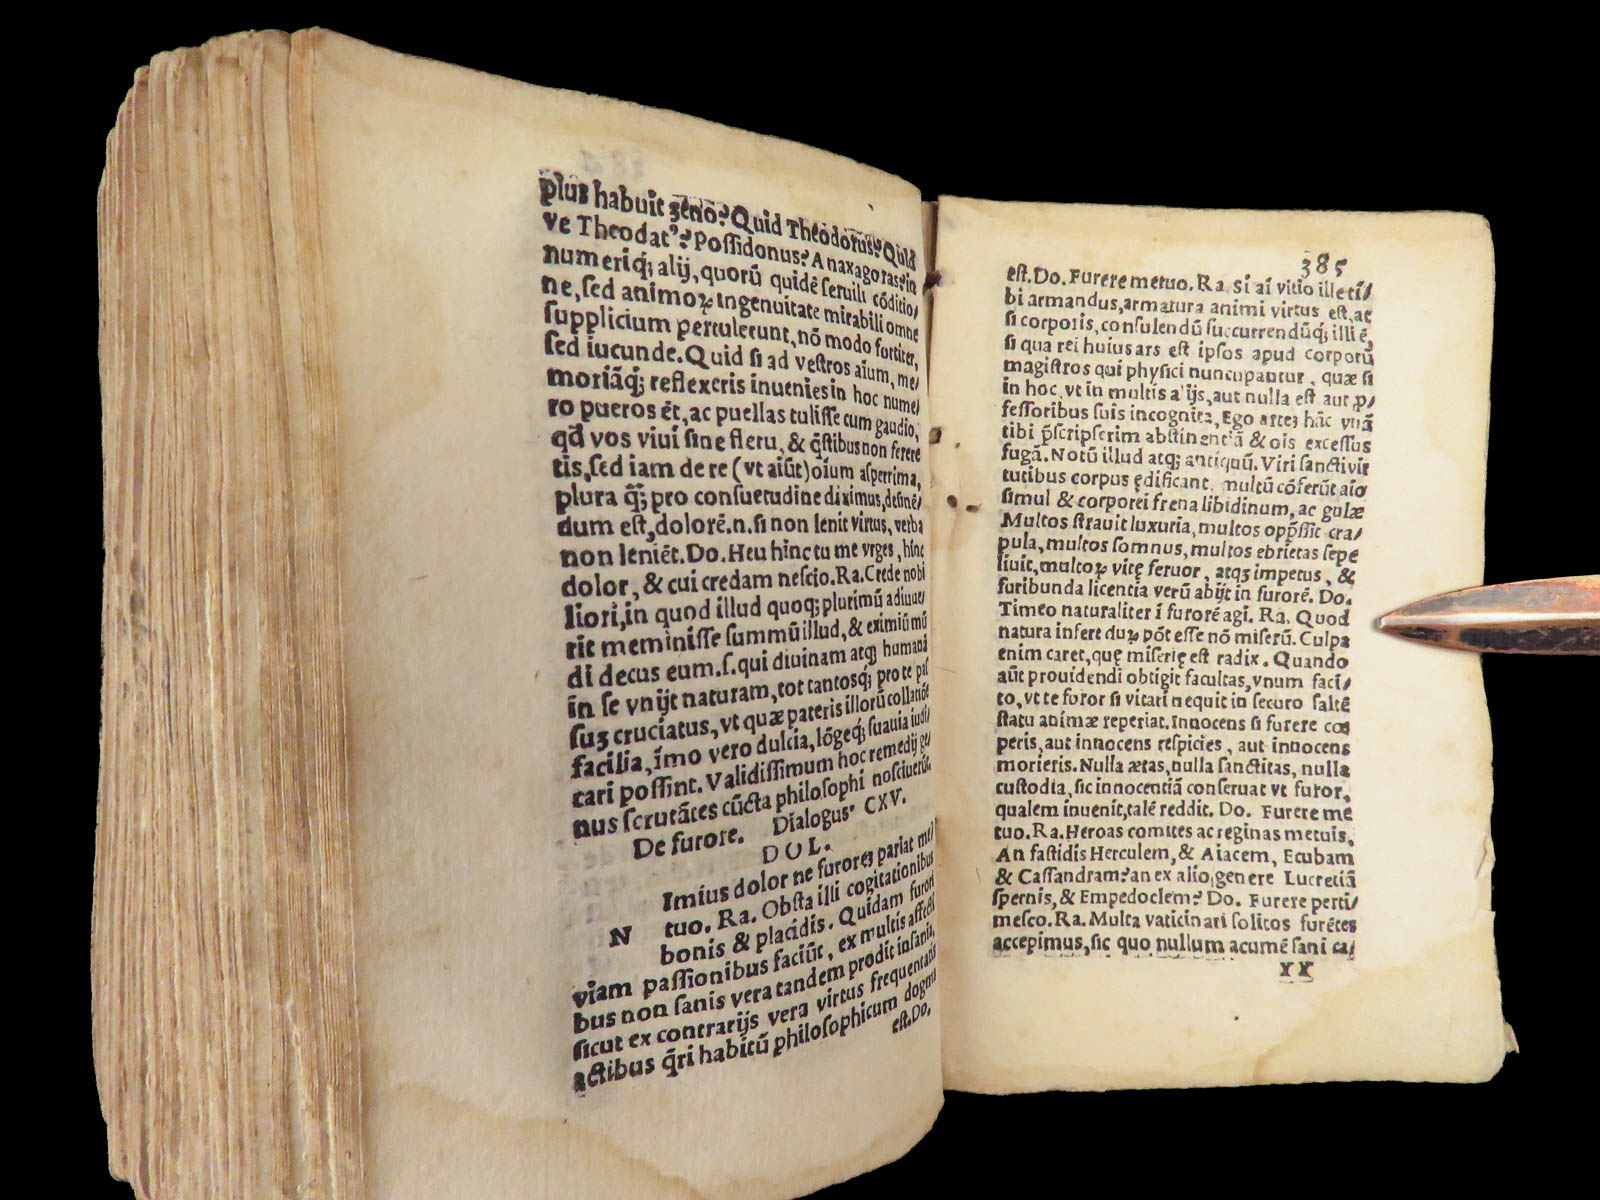 plus habuit zeno? Quid Theodorus? Quid
ve Theodatꝰ? Possidonus? Anaxagoras? in
numeriq; alij, quorū quidē seruili cōditio/
ne, sed animoꝝ ingenuitate mirabili omne
supplicium pertulerunt, nō modo fortiter,
sed iucunde. Quid si ad vestros aīum, me/
moriāq; reflexeris inuenies in hoc nume/
ro pueros ēt, ac puellas tulisse cum gaudio,
qđ vos viui sine fletu, & q̄stibus non ferre
tis, sed iam de re (vt aiūt) oīum asperrima,
plura q̄; pro consuetudine diximus, desinē/
dum est, dolorē.n. si non lenit virtus, verba
non leniēt. Do. Heu hinc tu me vrges, hinc
dolor, & cui credam nescio. Ra. Crede nobi
liori, in quod illud quoq; plurimū adiuue/
rit meminisse summū illud, & eximiū mū
di decus eum.s. qui diuinam atq; humanā
in se vnijt naturam, tot tantosq; pro te pas
sus cruciatus, vt quæ pateris illorū collatiōe
facilia, īmo vero dulcia, lōgeq; suauia iudi/
cari possint. Validissimum hoc remedij ge/
nus scrutātes cūcta philosophi nosciuerūt.
De furore. Dialogusꝰ CXV.
DOL.
N Imius dolor ne furorē pariat me/
tuo. Ra. Obsta illi cogitationibus
bonis & placidis. Quidam furori
viam passionibus faciūt, ex multis affecti
bus non sanis vera tandem prodit insania,
sicut ex contrarijs vera virtus frequentatis
actibus q̄ri habitū philosophicum dogma
est. Do.
385
est. Do. Furere metuo. Ra. si aī vitio ille tī/
bi armandus, armatura animi virtus est, ac
si corporis, consulendū succurrendūq; illi ē,
si qua rei huius ars est ipsos apud corporū
magistros qui physici nuncupantur, quæ si
in hoc, vt in multis alijs, aut nulla est aut ꝓ/
fessoribus suis incognita, Ego artē hāc vnā
tibi p̄scripserim abstinentiā & oīs excessus
fugā. Notū illud atq; antiquū. Viri sancti vir
tutibus corpus ędificant, multū cōferūt aīo
simul & corporei frena libidinum, ac gulæ
Multos strauit luxuria, multos opp̄ssit cra/
pula, multos somnus, multos ebrietas sepe
liuit, multoꝝ vitę feruor, atq; impetus, &
furibunda licentia verū abijt in furorē. Do.
Timeo naturaliter ī furorē agi. Ra. Quod
natura infert duꝝ pōt esse nō miserū. Culpa
enim caret, quę miserię est radix. Quando
aūt prouidendi obtigit facultas, vnum faci/
to, vt te foror si vitari nequit in securo saltē
statu animæ reperiat. Innocens si furere cœ
peris, aut innocens respicies, aut innocens
morieris. Nulla ætas, nulla sanctitas, nulla
custodia, sic innocentiā conseruat vt furor,
qualem inuenit, talē reddit. Do. Furere me
tuo. Ra. Heroas comites ac reginas metuis.
An fastidis Herculem, & Aiacem, Ecubam
& Cassandram? an ex alio genere Lucretiā
spernis, & Empedoclem? Do. Furere perti/
mesco. Ra. Multa vaticinari solitos furētes
accepimus, sic quo nullum acumē sani ca/
YY